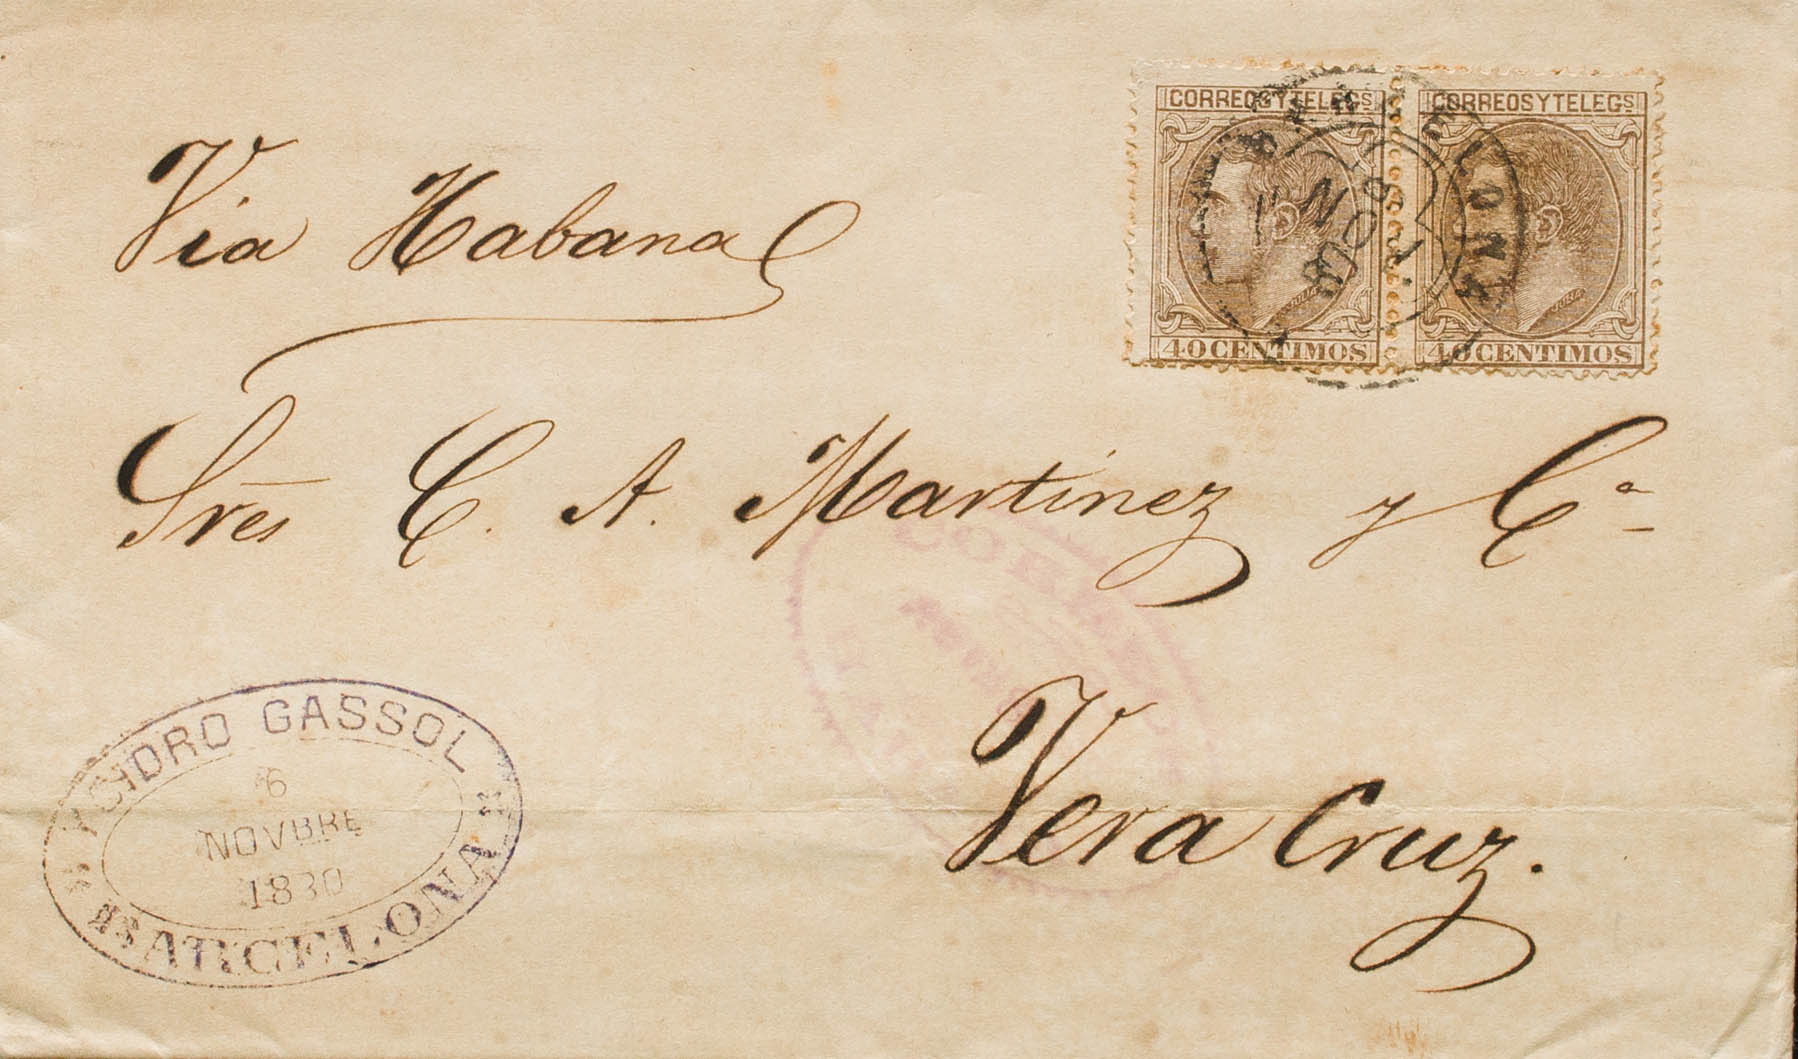 CORREOS Y TELEGS
CORREOS Y TELEGS
BARCELONA
40 CENTIMOS
40 CENTIMOS
Via Habana
Sres C. A. Martinez y Ca
Vera Cruz.
YSIDRO GASSOL
6
NOVBRE
1880
BARCELONA